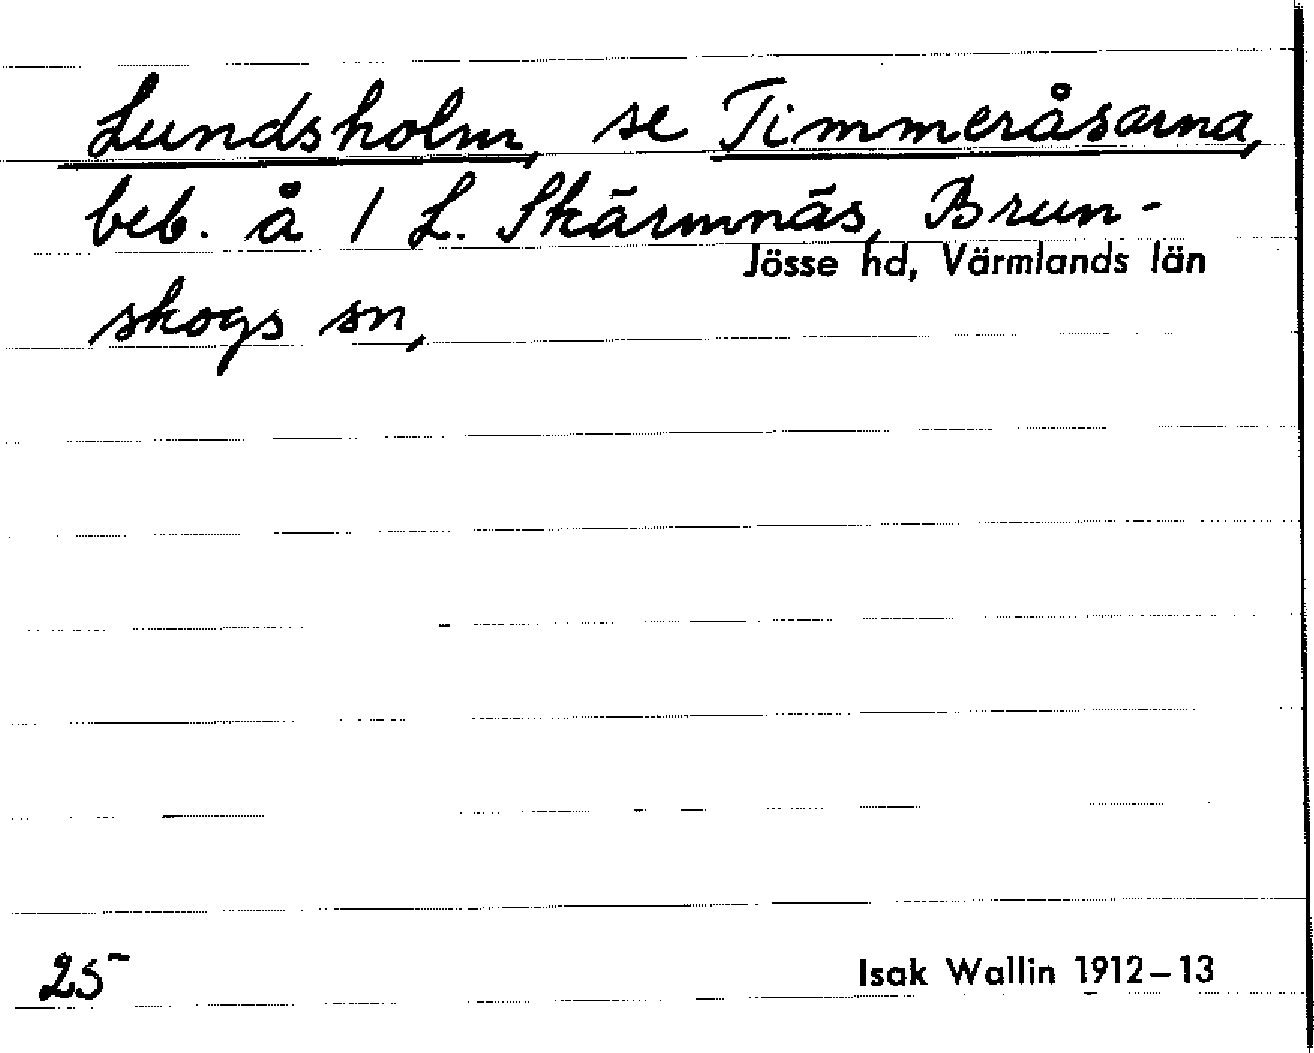 Lundsholm, se Timmeråsarna,
beb. å 1 L. Skärmnäs, Brun-
Jösse hd, Värmlands län
skogs sn,
25
Isak Wallin 1912–13